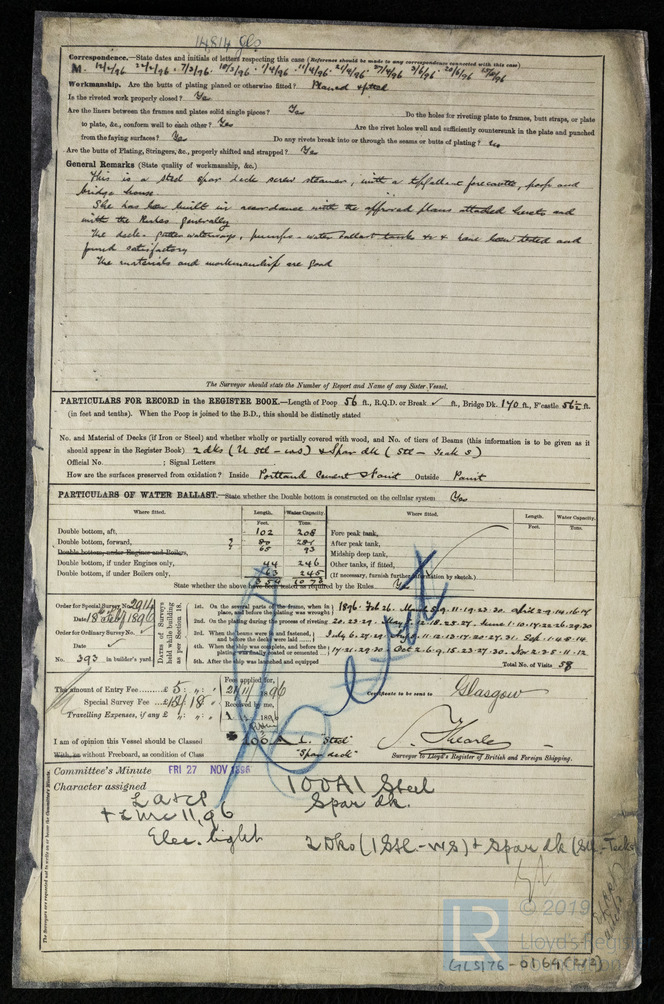 14814 Gls
Correspondence.—State dates and initials of letters respecting this case (Reference should be made to any correspondence connected with this case)
M. 12/2/96 22/2/96 7/3/96 10/3/96 7/4/96 11/4/96 21/4/96 27/4/96 3/6/96 20/6/96
Workmanship. Are the butts of plating planed or otherwise fitted? Planed & fitted
Is the riveted work properly closed? Yes
Are the liners between the frames and plates solid single pieces? Yes Do the holes for riveting plate to frames, butt straps, or plate
to plate, &c., conform well to each other? Yes Are the rivet holes well and sufficiently countersunk in the plate and punched
from the faying surfaces? Yes Do any rivets break into or through the seams or butts of plating? no
Are the butts of Plating, Stringers, &c., properly shifted and strapped? Yes
General Remarks (State quality of workmanship, &c.)
This is a steel spar deck screw steamer, with a topgallant forecastle, poop and
bridge house
She has been built in accordance with the approved plans attached hereto and
with the Rules generally
The decks - gutter waterways, pumps - water ballast tanks &c & have been tested and
found satisfactory
The materials and workmanship are good
The Surveyor should state the Number of Report and Name of any Sister Vessel.
PARTICULARS FOR RECORD in the REGISTER BOOK.—Length of Poop 56 ft., R.Q.D. or Break ✓ ft., Bridge Dk. 140 ft., F'castle 56½ ft.
(in feet and tenths). When the Poop is joined to the B.D., this should be distinctly stated
No. and Material of Decks (if Iron or Steel) and whether wholly or partially covered with wood, and No. of tiers of Beams (this information is to be given as it
should appear in the Register Book) 2 dks & Spar dk (Stl - Teak S)
Official No. ; Signal Letters
How are the surfaces preserved from oxidation? Inside Portland Cement & Paint Outside Paint
PARTICULARS OF WATER BALLAST.—State whether the Double bottom is constructed on the cellular system Yes
Where fitted. Length. Water Capacity. Where fitted. Length. Water Capacity.
Feet. Tons. Feet. Tons.
Double bottom, aft, 102 208 Fore peak tank,
Double bottom, forward, 80 After peak tank,
Double bottom, under Engines and Boilers, 65 93 Midship deep tank,
Double bottom, if under Engines only, 44 246 Other tanks, if fitted,
Double bottom, if under Boilers only, 63 245 (If necessary, furnish further information by sketch.)
State whether the above have been tested as required by the Rules
Order for Special Survey No. 2914
Date 18th Feby 1896
Order for Ordinary Survey No. ✓
Date ✓
No. 393 in builder's yard.
Dates of Surveys held while building as per Section 18.
1st. On the several parts of the frame, when in place, and before the plating was wrought
1896. Feb 26. March 5. 9. 11. 19. 23. 30. April 2. 9. 14. 16. 17
2nd. On the plating during the process of riveting 20. 23. 29. May 7. 12. 18. 25. 27. June 1. 10. 17. 22. 26. 29. 30
3rd. When the beams were in and fastened, and before the decks were laid
July 6. 27. 29. Aug 5. 11. 12. 13. 17. 20. 27. 31. Sep. 1. 4. 8. 14.
4th. When the ship was complete, and before the plating was finally coated or cemented
17. 21. 29. 30 Oct 2. 6. 9. 15. 23. 27. 30. Nov 2. 3. 5. 11. 12
5th. After the vessel was launched and equipped Total No. of Visits 58
The amount of Entry Fee £ 5 : " : "
Special Survey Fee
Travelling Expenses, if any £ " : " :
Fee applied for,
21/11/1896
Received by me,
1896
Certificate to be sent to Glasgow
I am of opinion this Vessel should be Classed 100 A 1. "Steel"
With, or without Freeboard, as condition of Class "Spar deck"
Surveyor to Lloyd's Register of British and Foreign Shipping.
Committee's Minute FRI 27 NOV 1896
Character assigned 100A1 Steel
Spar dk.
+ LMC 11,96
Elec. light
2 Dks (1 Stl - WS) & Spar dk (Stl - Teak
The Surveyors are requested not to write on or below the Committee's Minute.
LR
© 2019
Lloyd's Register
GLS176-0164(2/2)